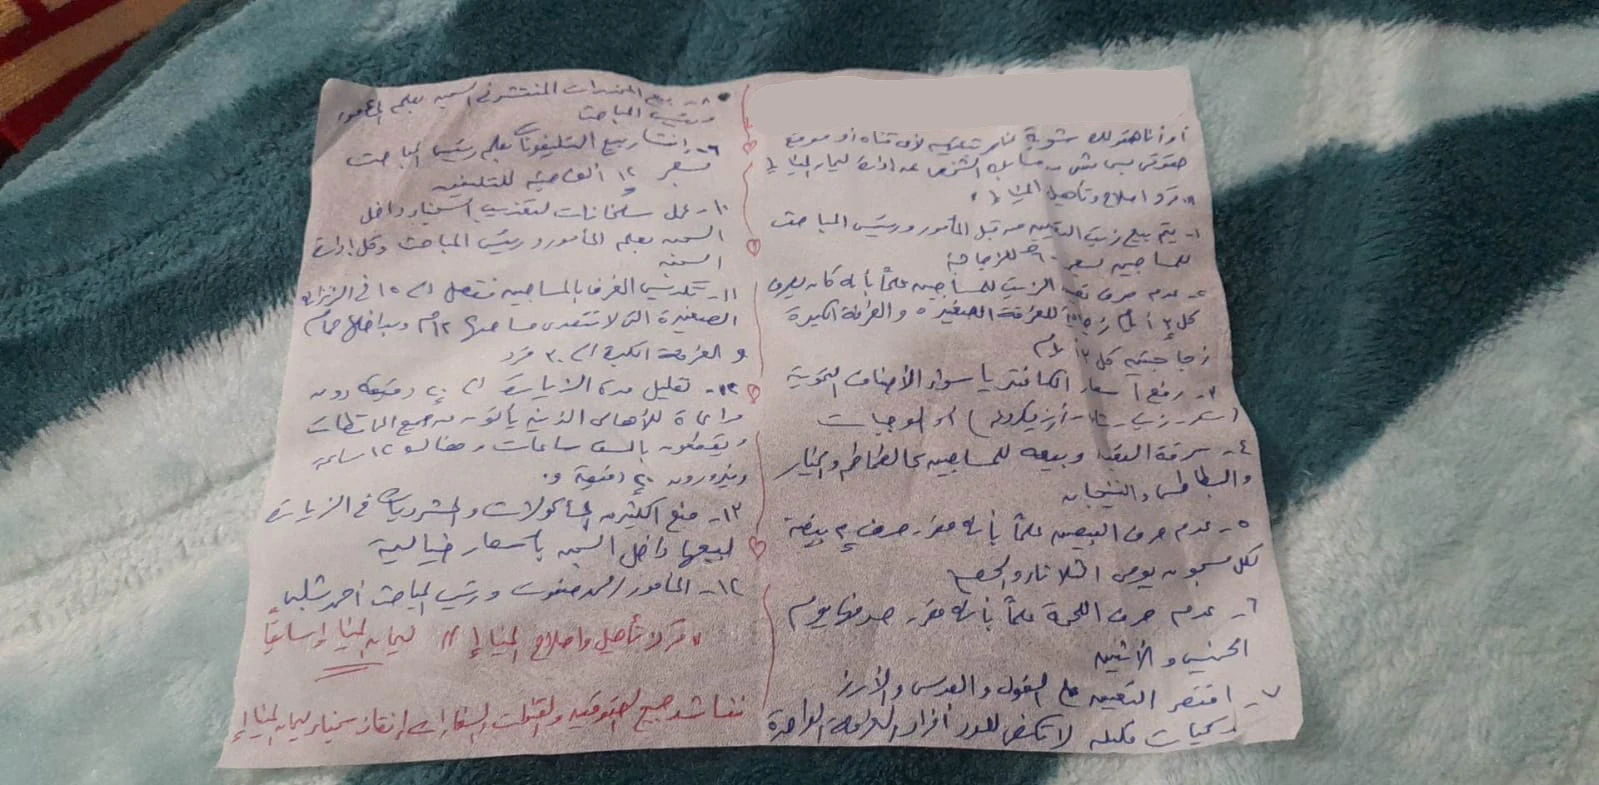 أو أنا هقولك شوية لأى قناة أو موقع
حقوقى بس مش من مقابل الشخصى عن ادارة ليمان المنيا
مركز اصلاح وتأهيل المنيا
١- يتم بيع زيت التعيين من قبل المأمور ورئيس المباحث
للمساجين بسعر ٦٠ للزجاجة
٢- عدم صرف تعيين الزيت للمساجين علماً بأنه كان يصرف
كل ٣ أيام زجاجة للغرفة الصغيرة والغرفة الكبيرة
زجاجتين كل ٣ أيام
٣- رفع أسعار الكافتريا سواء الأصناف التموينية
(سكر - زيت - شاى - أرز - مكرونه) أو الوجبات
٤- سرقة التعيين وبيعه للمساجين كالطماطم والخيار
والبطاطس والتنجان
٥- عدم صرف البيض علماً بأنه مقرر صرف ٢ بيضة
لكل مسجون يومى الثلاثاء والجمعه
٦- عدم صرف اللحمة علماً بأنه مقرر صرفها يوم
الخميس والأثنين
٧- اقتصر التعيين على الفول والعدس والأرز
بكميات قليله لا تكفى لعدد أفراد الغرفة الواحدة
٨- بيع المخدرات المنتشر فى السجن بعلم المأمور
ورئيس المباحث
٩- إنتشار بيع التليفونات بعلم رئيس المباحث
بسعر ١٢ ألف جنيه للتليفون
١٠- عمل سلخانات لتعذيب السجناء داخل
السجن بعلم المأمور ورئيس المباحث وكل إدارة
السجن
١١- تكديس الغرف بالمساجين فتصل الى ١٥ فى الزنزانه
الصغيرة التى لا تتعدى مساحتها ١٢م وبداخلها حمام
والغرفة الكبيرة الى ٣٠ فرد
١٢- تقليل مدة الزيارة الى ٢٠ دقيقة دون
مراعاة للأهالى الذين يأتون من جميع المحافظات
ويقطعون بالسفر ساعات وهناك ١٢ ساعه
ويزورون ٢٠ دقيقة
١٣- منع الكثير من المأكولات والمشروبات فى الزيارة
لبيعها داخل السجن بأسعار خيالية
١٢- المأمور / محمد صفوت ورئيس المباحث أحمد شلبى
مركز تأهيل واصلاح المنيا // ليمان المنيا سابقاً
نناشد جميع الحقوقيين والقنوات والسفارات إنقاذ سجناء ليمان المنيا